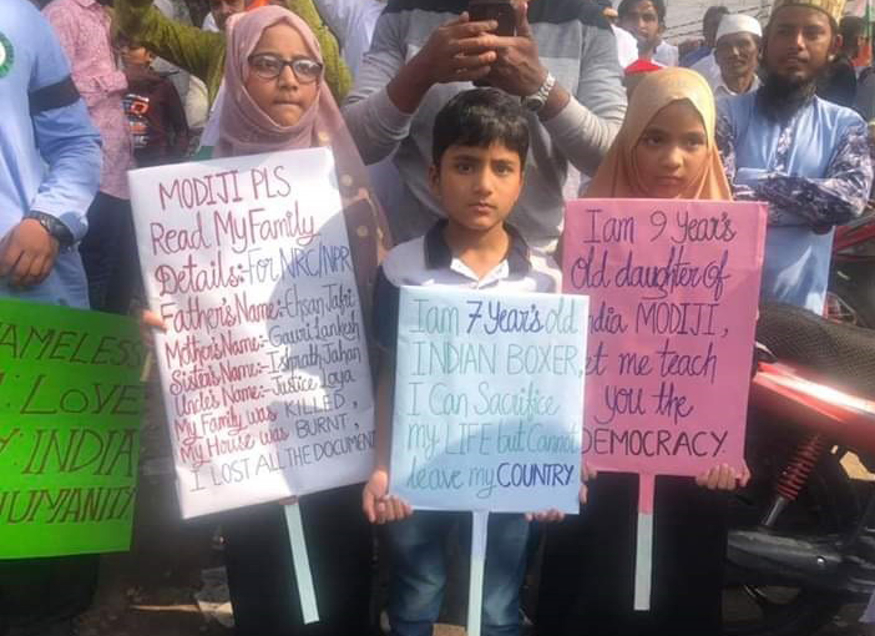 MODIJI PLS
Read My Family
Details:-For NRC/NPR
Father's Name:-Ehsan Jafri
Mother's Name:-Gauri Lankesh
Sister's Name:-Ishrath Jahan
Uncle's Name:-Justice Loya
My Family was KILLED,
My House was BURNT,
I LOST ALL THE DOCUMENT
I am 7 Year's old
INDIAN BOXER,
I Can Sacrifice
my LIFE but Cannot
leave my COUNTRY
I am 9 Year's
Old daughter of
ndia MODIJI,
et me teach
you the
DEMOCRACY.
AMELESS
LOVE
INDIA
HUMANITY